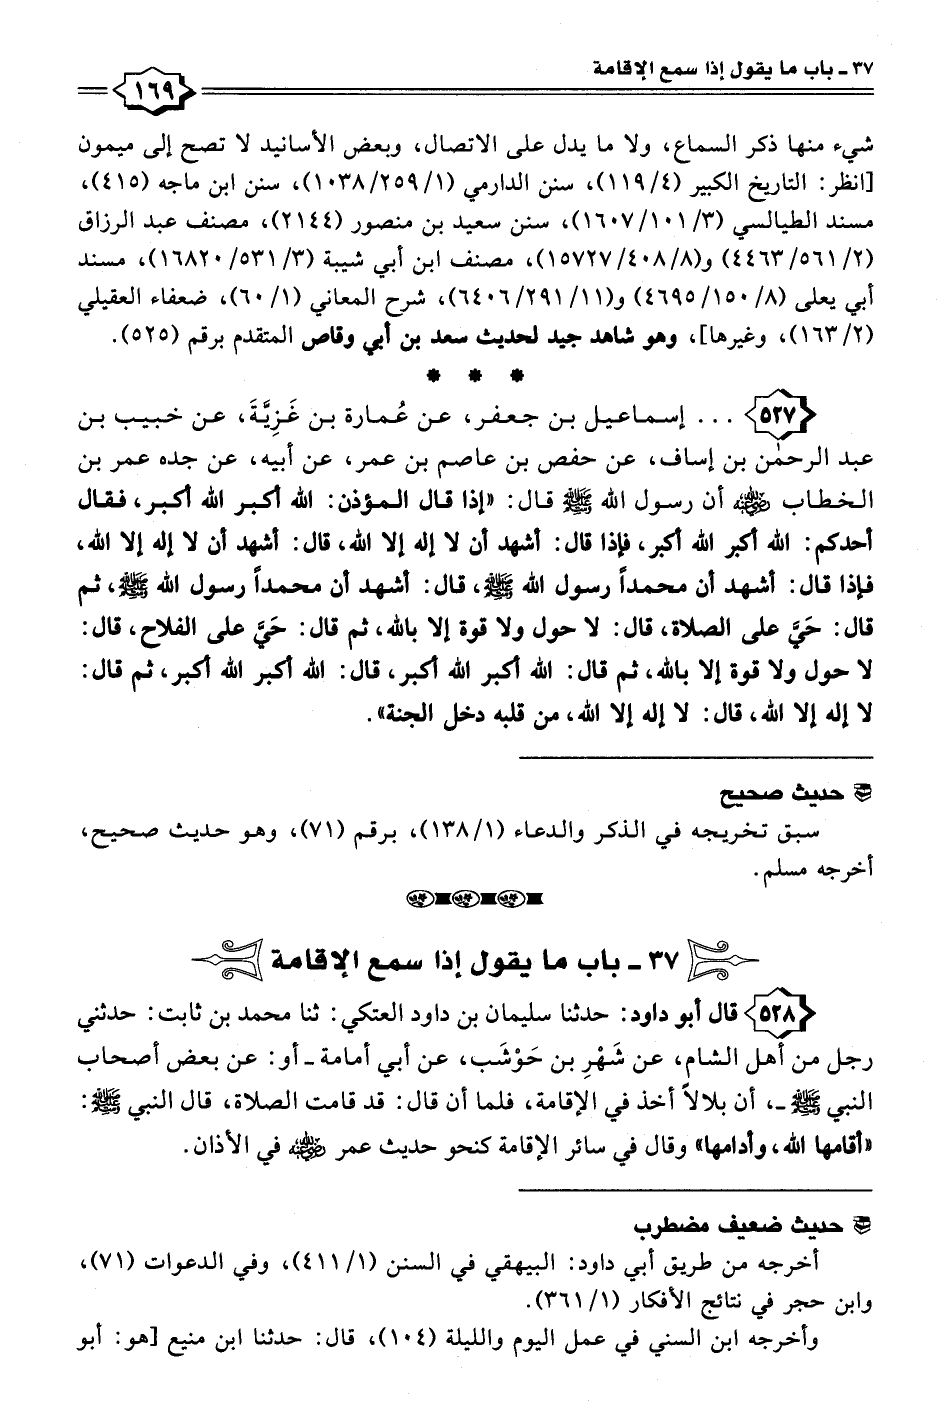 ٣٧ ـ باب ما يقول إذا سمع الإقامة
١٦٩
شيء منها ذكر السماع، ولا ما يدل على الاتصال، وبعض الأسانيد لا تصح إلى ميمون
[انظر: التاريخ الكبير (١١٩/٤)، سنن الدارمي (١٠٣٨/٢٥٩/١)، سنن ابن ماجه (٤١٥)،
مسند الطيالسي (١٦٠٧/١٠١/٣)، سنن سعيد بن منصور (٢١٤٤)، مصنف عبد الرزاق
(٤٤٦٣/٥٦١/٢) و(١٥٧٢٧/٤٠٨/٨)، مصنف ابن أبي شيبة (١٦٨٢٠/٥٣١/٣)، مسند
أبي يعلى (٤٦٩٥/١٥٠/٨) و(٦٤٠٦/٢٩١/١١)، شرح المعاني (٦٠/١)، ضعفاء العقيلي
(١٦٣/٢)، وغيرها]، وهو شاهد جيد لحديث سعد بن أبي وقاص المتقدم برقم (٥٢٥).
* * *
٥٢٧ ... إسماعيل بن جعفر، عن عُمارة بن غَزِيَّةَ، عن خبيب بن
عبد الرحمٰن بن إساف، عن حفص بن عاصم بن عمر، عن أبيه، عن جده عمر بن
الخطاب رضي الله عنه أن رسول الله ﷺ قال: «إذا قال المؤذن: الله أكبر الله أكبر، فقال
أحدكم: الله أكبر الله أكبر، فإذا قال: أشهد أن لا إله إلا الله، قال: أشهد أن لا إله إلا الله،
فإذا قال: أشهد أن محمداً رسول الله ﷺ، قال: أشهد أن محمداً رسول الله ﷺ، ثم
قال: حَيَّ على الصلاة، قال: لا حول ولا قوة إلا بالله، ثم قال: حَيَّ على الفلاح، قال:
لا حول ولا قوة إلا بالله، ثم قال: الله أكبر الله أكبر، قال: الله أكبر الله أكبر، ثم قال:
لا إله إلا الله، قال: لا إله إلا الله، من قلبه دخل الجنة».
حديث صحيح
سبق تخريجه في الذكر والدعاء (١٣٨/١)، برقم (٧١)، وهو حديث صحيح،
أخرجه مسلم.
٣٧ ـ باب ما يقول إذا سمع الإقامة
٥٢٨ قال أبو داود: حدثنا سليمان بن داود العتكي: ثنا محمد بن ثابت: حدثني
رجل من أهل الشام، عن شَهْرِ بن حَوْشَب، عن أبي أمامة ـ أو: عن بعض أصحاب
النبي ﷺ ـ، أن بلالاً أخذ في الإقامة، فلما أن قال: قد قامت الصلاة، قال النبي ﷺ:
«أقامها الله، وأدامها» وقال في سائر الإقامة كنحو حديث عمر رضي الله عنه في الأذان.
حديث ضعيف مضطرب
أخرجه من طريق أبي داود: البيهقي في السنن (٤١١/١)، وفي الدعوات (٧١)،
وابن حجر في نتائج الأفكار (٣٦١/١).
وأخرجه ابن السني في عمل اليوم والليلة (١٠٤)، قال: حدثنا ابن منيع [هو: أبو